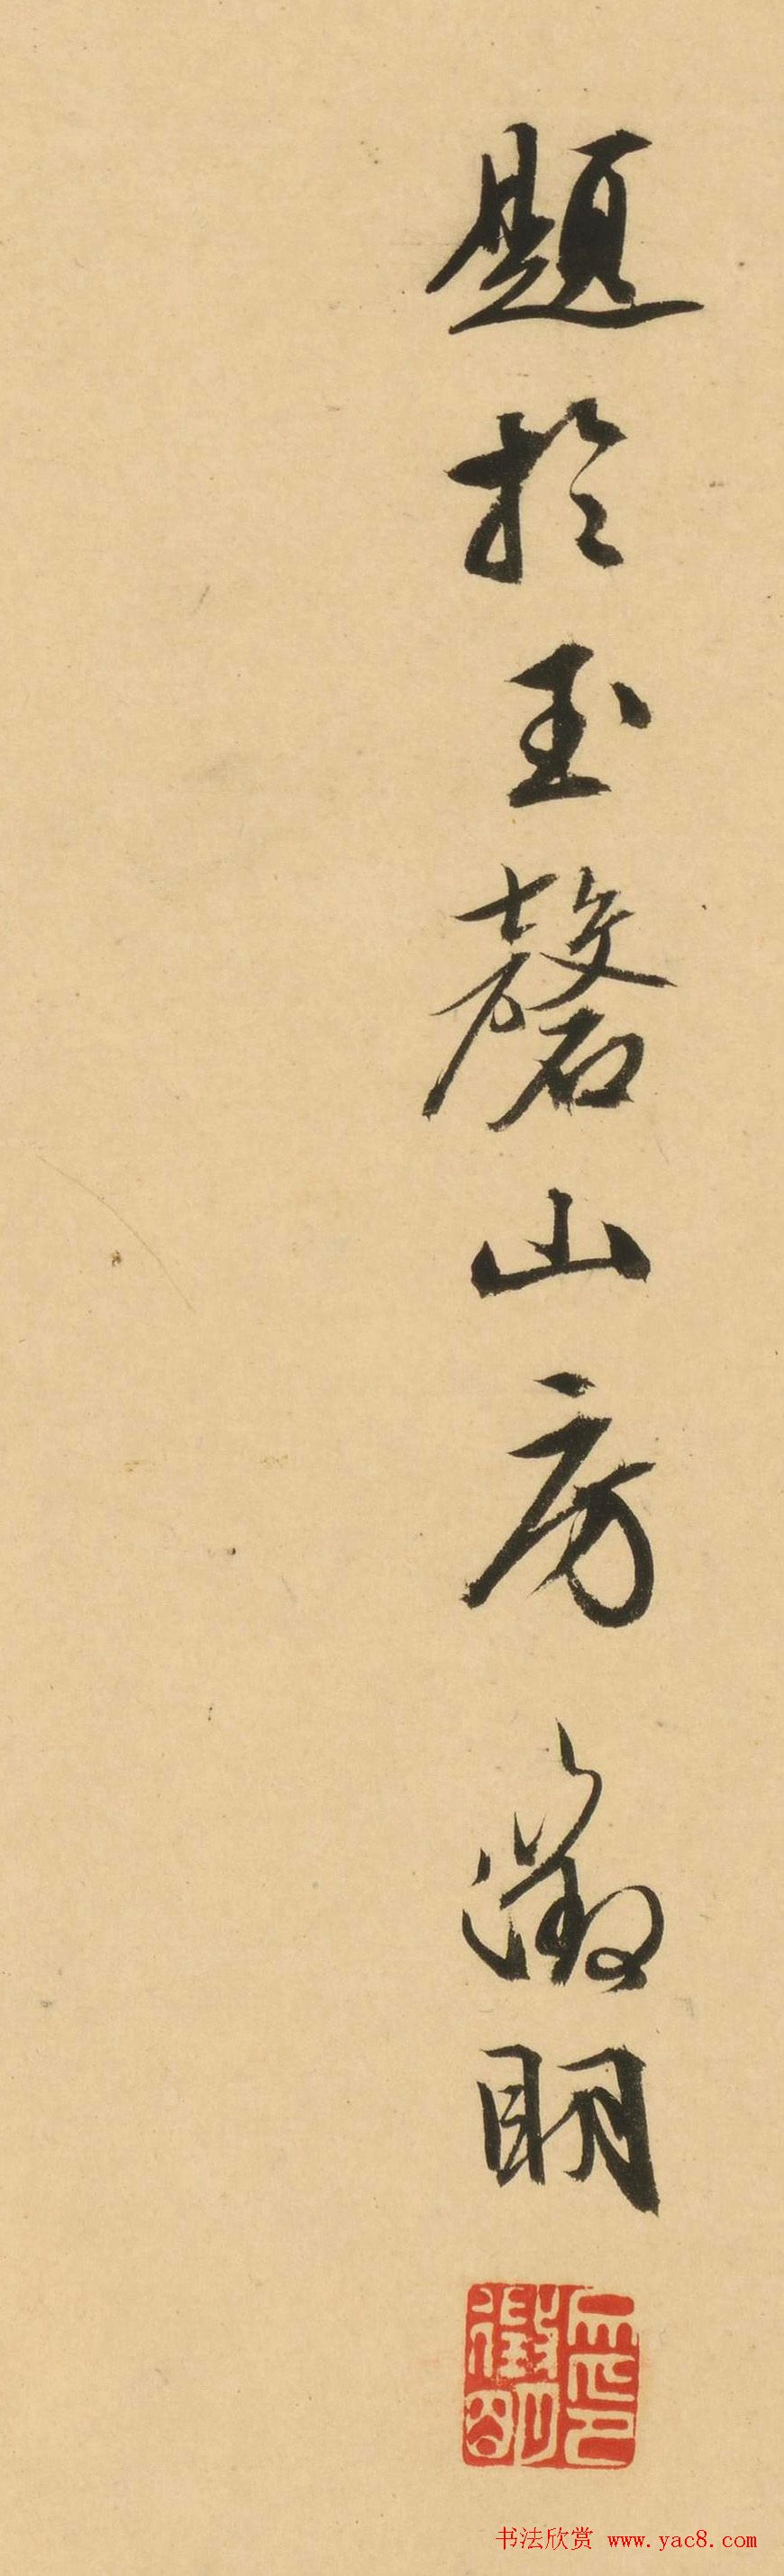 題於玉磬山房徵明
徵明
印
书法欣赏 www.yac8.com